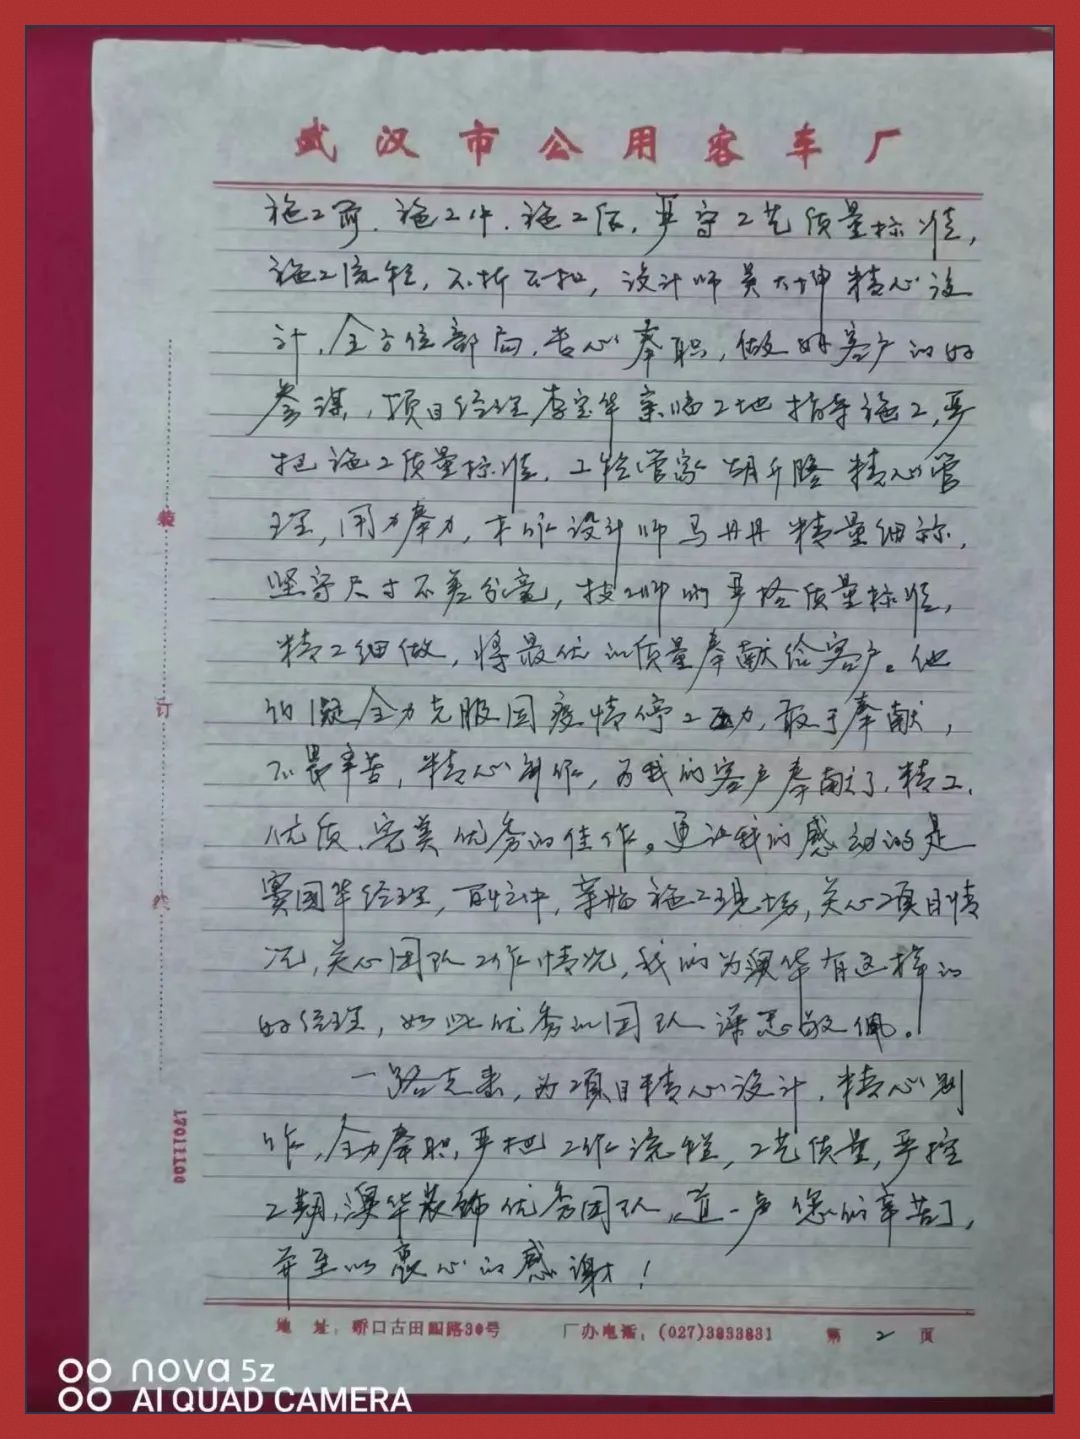 武汉市公用客车厂
施工前、施工中、施工后，严守工艺质量标准，
施工流程，不折不扣，设计师吴大坤精心设
计，全方位部局，尽心奉职，做好客户的好
参谋，项目经理李宝华亲临工地指导施工，严
把施工质量标准，工程管家胡升隆精心管
理，用力奉力，木作设计师马丹丹精量细称，
坚守尺寸不差分毫，技师们严控质量标准，
精工细做，将最优的质量奉献给客户。他
们凝全力克服因疫情停工压力，敢于奉献，
不畏辛苦，精心制作，为我们客户奉献了，精工、
优质、完美优秀的佳作。更让我们感动的是
窦国华经理，百忙中，亲临施工现场，关心项目情
况，关心团队工作情况，我们为澳华有这样的
好经理，如此优秀的团队深表敬佩。
一路走来，为项目精心设计，精心制
作，全力奉职，严把工作流程，工艺质量，严控
工期，澳华装饰优秀团队，道一声您们辛苦了，
并至以衷心的感谢！
装
订
线
17011100
地 址：硚口古田四路30号 厂办电话：(027)3833831 第 2 页
nova 5z
AI QUAD CAMERA